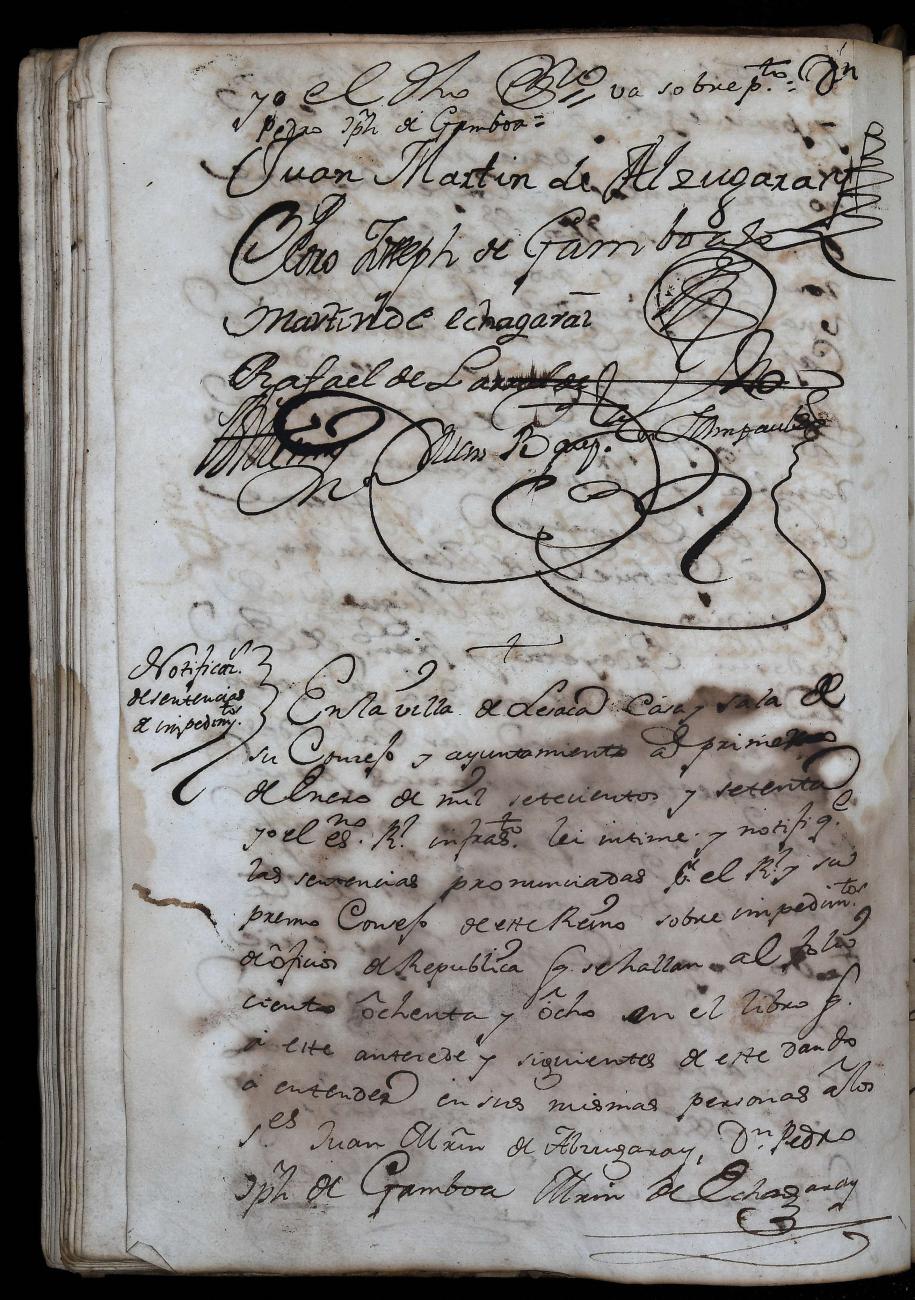 yo el dho Ssno va sobre p.to = Dn
Pedro Jph de Gamboa =
Juan Martin de Alzugaray
Pedro Joseph de Gamboa
Martin de echagarai
Rafael de
Juan
Notificaz.n
de sentencias
de impedim.tos
En la villa de Lesaca Casa y sala de
su Concejo y ayuntamiento a primero
de Enero de mil setecientos y setenta
yo el es.no R.l infras.to lei intime y notifiq.e
las sentencias pronunciadas p.r el R.l y su
premo Consejo de este Reino sobre impedim.tos
de ôficios de Republica q. se hallan al folio
ciento ôchenta y ôcho en el libro q.
a este antecede y siguientes de este dando
a entender en sus mismas personas a los
s.es Juan Mrñ de Alzugaray, Dn Pedro
Jph de Gamboa Mrñ de Echagaray